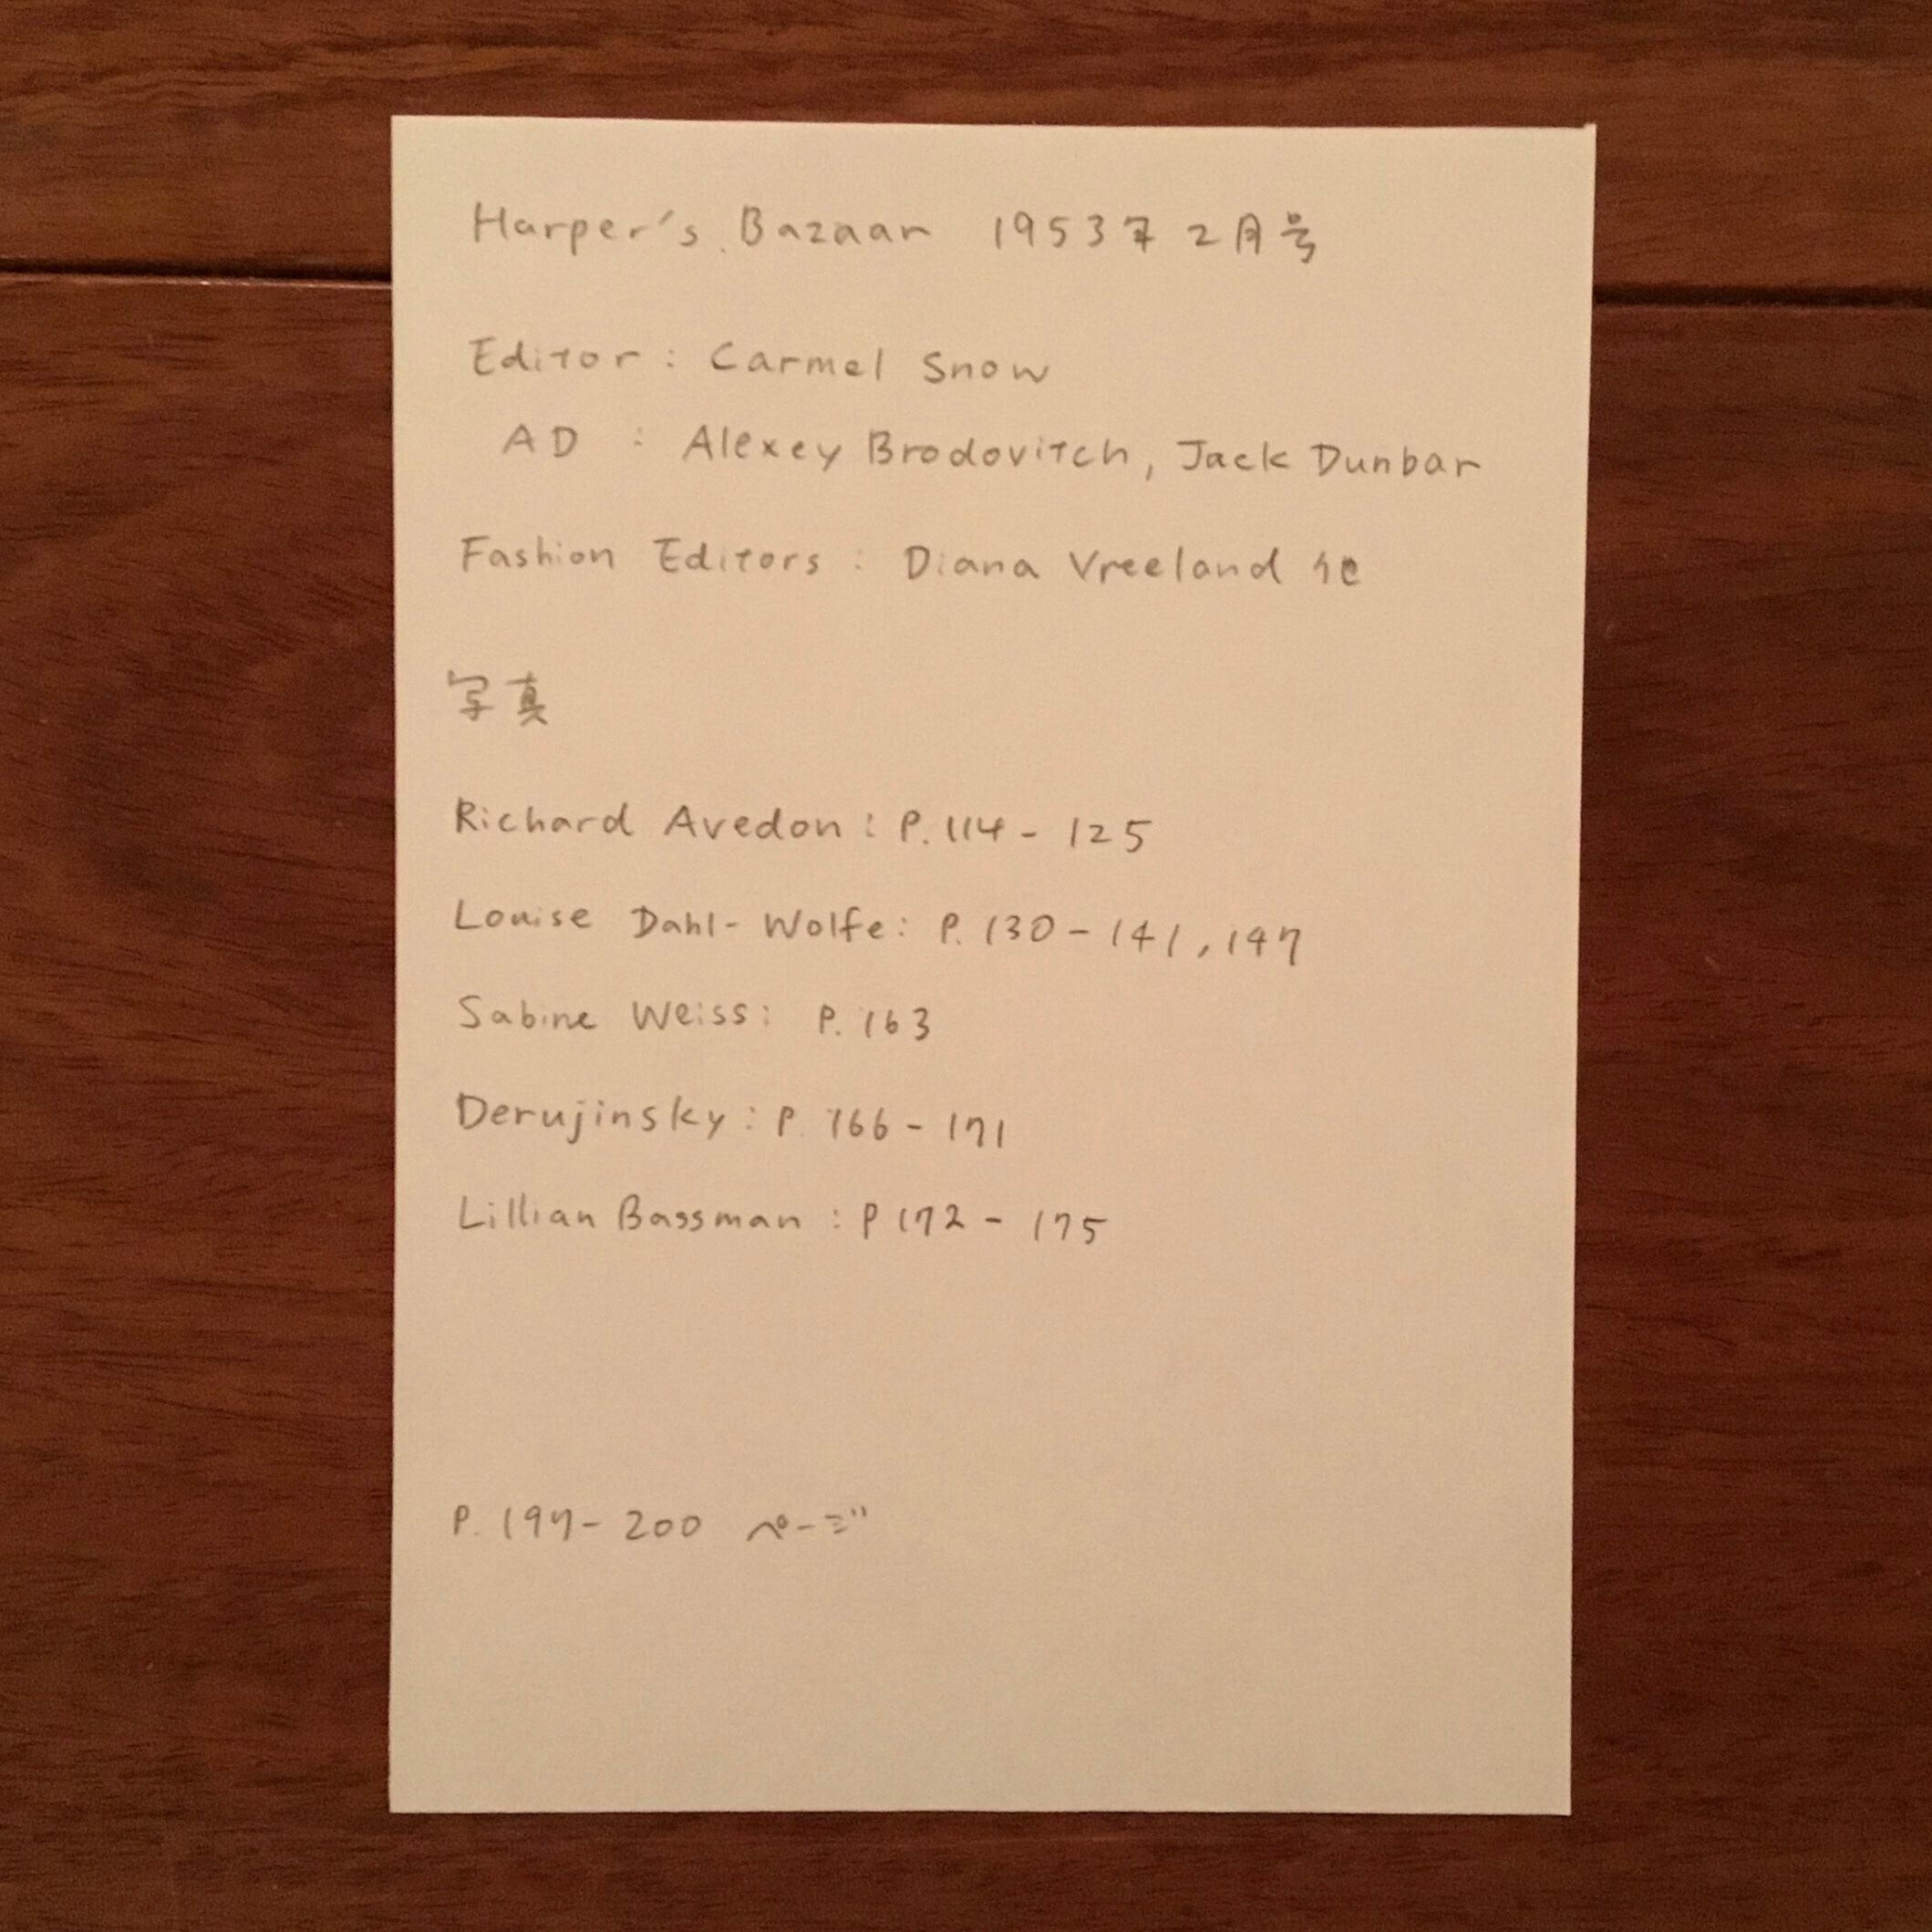 Harper's Bazaar 1953年 2月号
Editor : Carmel Snow
AD : Alexey Brodovitch, Jack Dunbar
Fashion Editors : Diana Vreeland 他
写真
Richard Avedon : P. 114 - 125
Louise Dahl-Wolfe : P. 130 - 141, 147
Sabine Weiss : P. 163
Derujinsky : P. 166 - 171
Lillian Bassman : P 172 - 175
P. 197 - 200 ページ